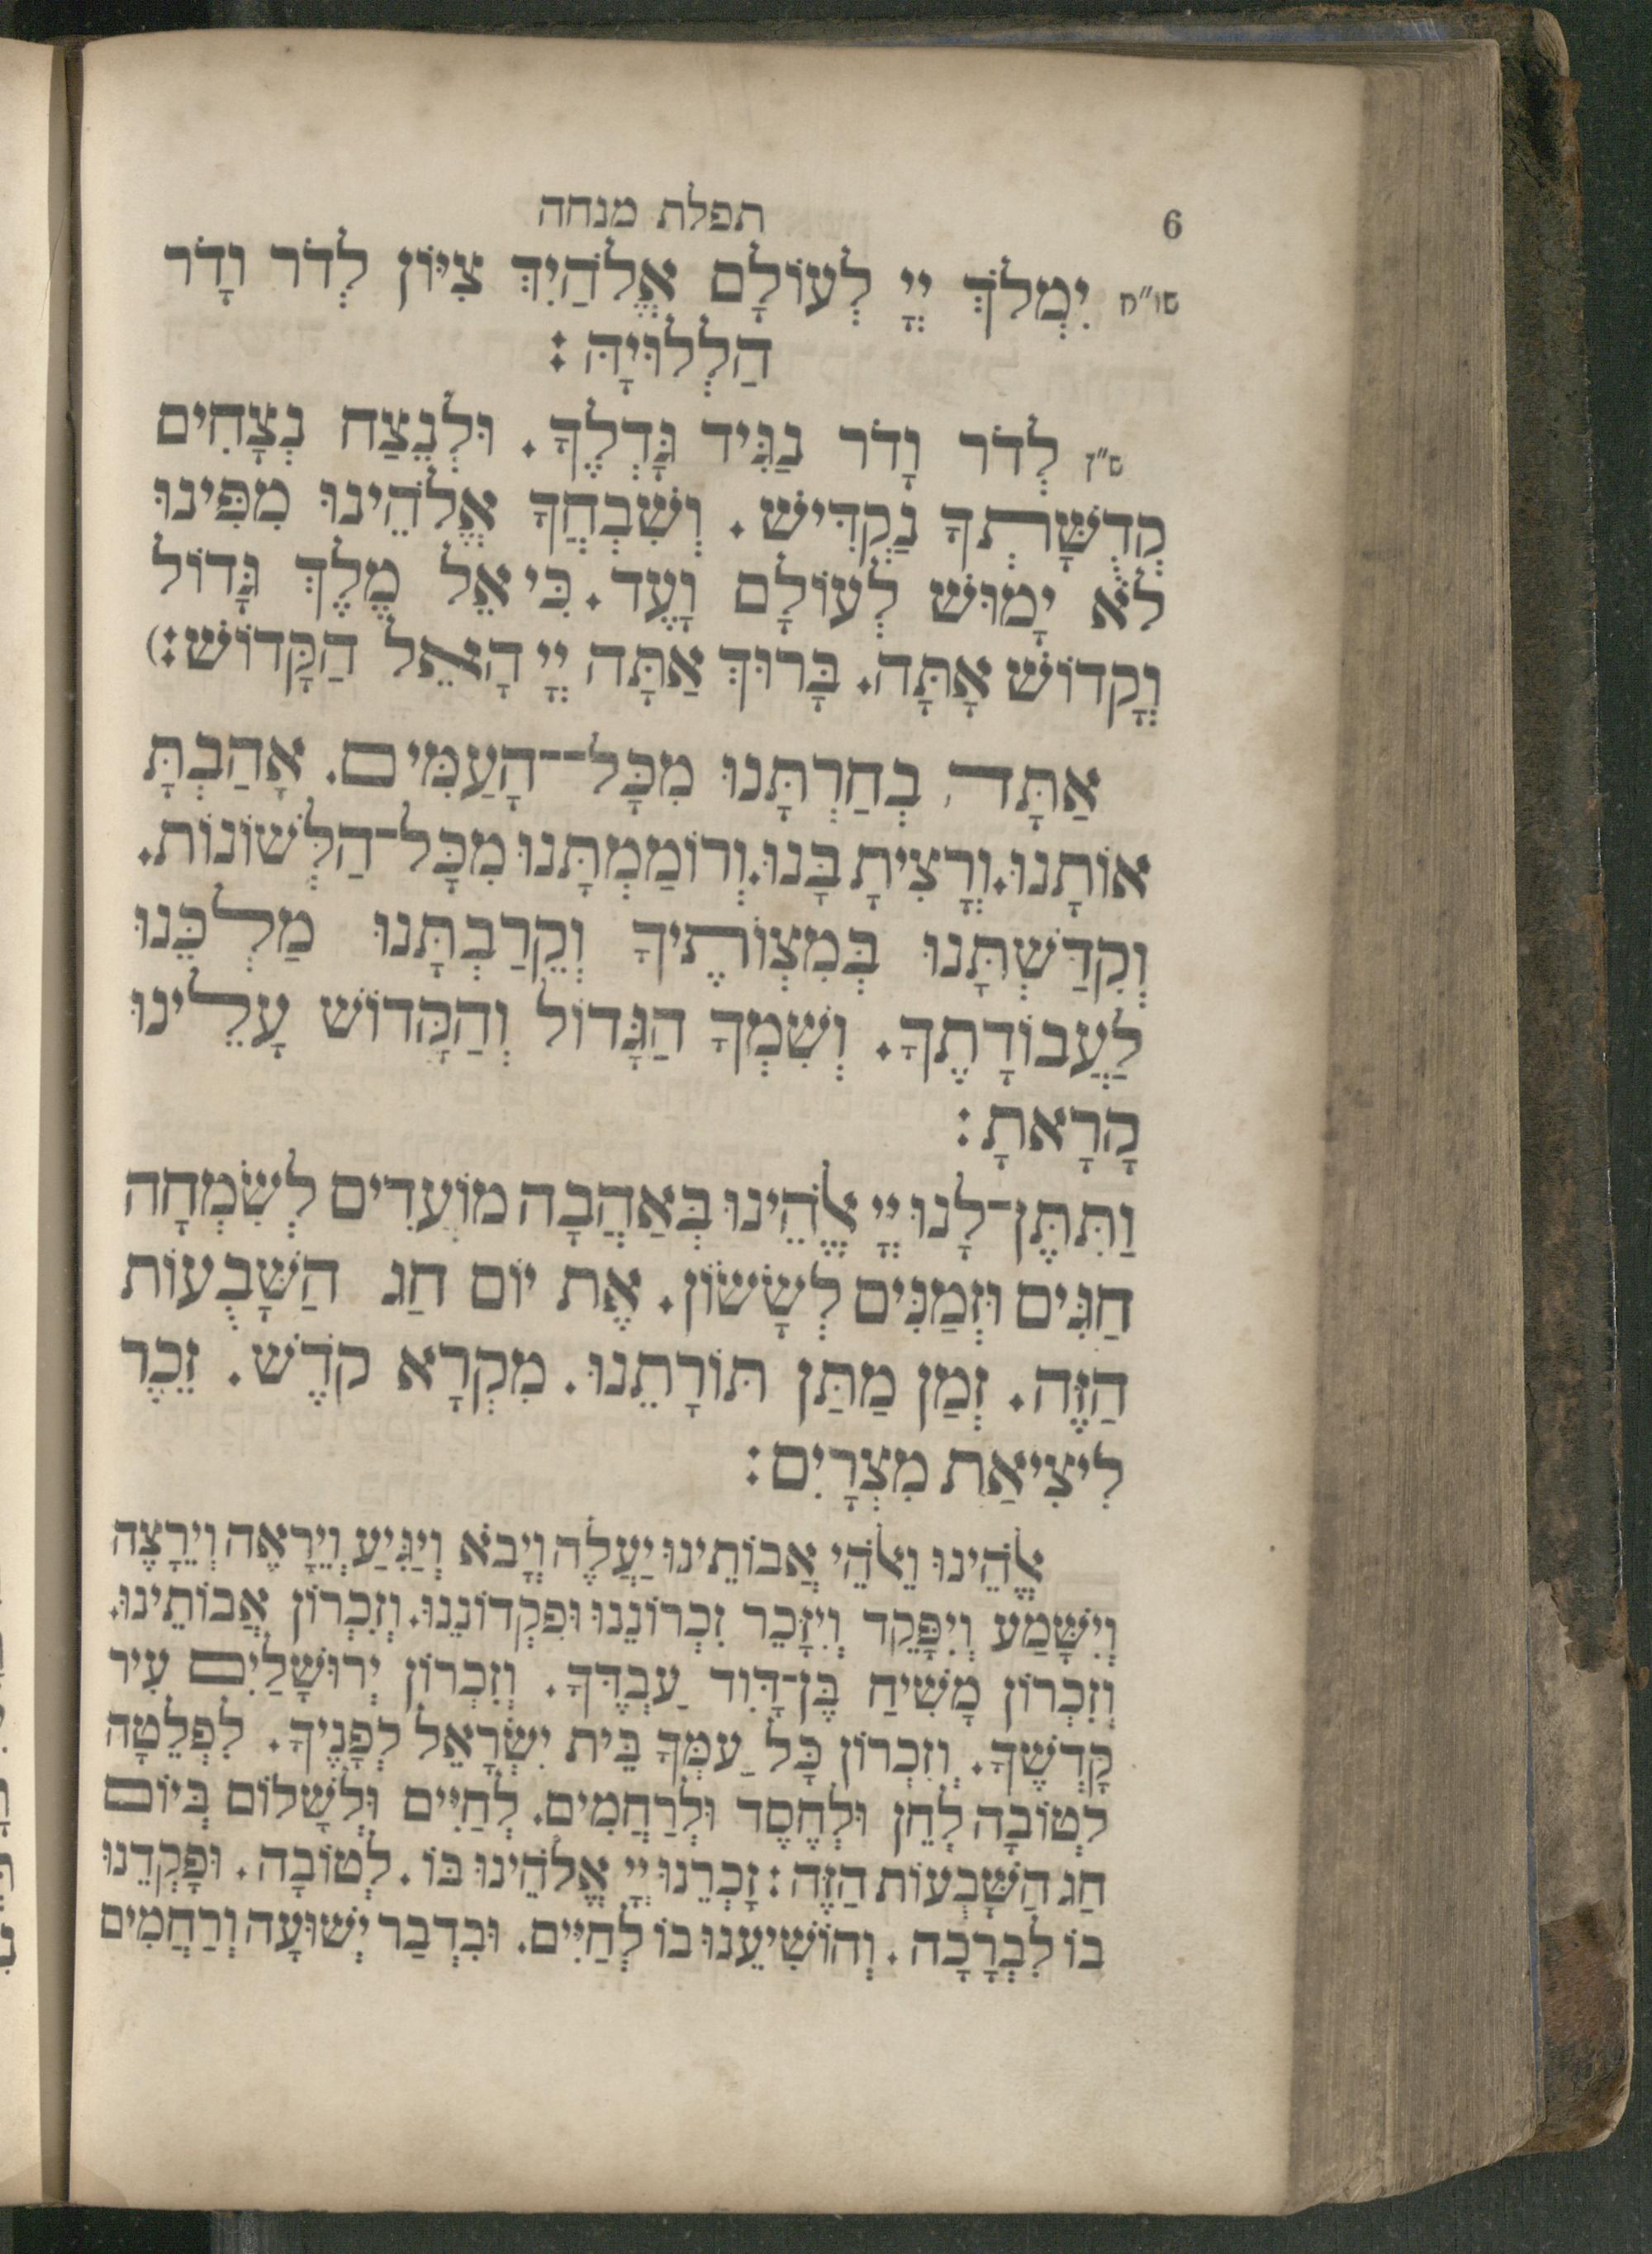 6
תפלת מנחה
שו״ח יִמְלֹךְ יְיָ לְעוֹלָם אֱלֹהַיִךְ צִיּוֹן לְדֹר וָדֹר
הַלְלוּיָהּ:
ש״ן לְדֹר וָדֹר נַגִּיד גָּדְלֶךָ. וּלְנֵצַח נְצָחִים
קְדֻשָּׁתְךָ נַקְדִּישׁ. וְשִׁבְחֲךָ אֱלֹהֵינוּ מִפִּינוּ
לֹא יָמוּשׁ לְעוֹלָם וָעֶד. כִּי אֵל מֶלֶךְ גָּדוֹל
וְקָדוֹשׁ אָתָּה. בָּרוּךְ אַתָּה יְיָ הָאֵל הַקָּדוֹשׁ:)
אַתָּה בְחַרְתָּנוּ מִכָּל־הָעַמִּים. אָהַבְתָּ
אוֹתָנוּ. וְרָצִיתָ בָּנוּ. וְרוֹמַמְתָּנוּ מִכָּל־הַלְּשׁוֹנוֹת.
וְקִדַּשְׁתָּנוּ בְּמִצְוֹתֶיךָ וְקֵרַבְתָּנוּ מַלְכֵּנוּ
לַעֲבוֹדָתֶךָ. וְשִׁמְךָ הַגָּדוֹל וְהַקָּדוֹשׁ עָלֵינוּ
קָרָאתָ:
וַתִּתֶּן־לָנוּ יְיָ אֱלֹהֵינוּ בְּאַהֲבָה מוֹעֲדִים לְשִׂמְחָה
חַגִּים וּזְמַנִּים לְשָׂשׂוֹן. אֶת יוֹם חַג הַשָּׁבֻעוֹת
הַזֶּה. זְמַן מַתַּן תּוֹרָתֵנוּ. מִקְרָא קֹדֶשׁ. זֵכֶר
לִיצִיאַת מִצְרָיִם:
אֱלֹהֵינוּ וֵאלֹהֵי אֲבוֹתֵינוּ יַעֲלֶה וְיָבֹא וְיַגִּיעַ וְיֵרָאֶה וְיֵרָצֶה
וְיִשָּׁמַע וְיִפָּקֵד וְיִזָּכֵר זִכְרוֹנֵנוּ וּפִקְדוֹנֵנוּ. וְזִכְרוֹן אֲבוֹתֵינוּ.
וְזִכְרוֹן מָשִׁיחַ בֶּן־דָּוִד עַבְדֶּךָ. וְזִכְרוֹן יְרוּשָׁלַיִם עִיר
קָדְשֶׁךָ. וְזִכְרוֹן כָּל עַמְּךָ בֵּית יִשְׂרָאֵל לְפָנֶיךָ. לִפְלֵטָה
לְטוֹבָה לְחֵן וּלְחֶסֶד וּלְרַחֲמִים. לְחַיִּים וּלְשָׁלוֹם בְּיוֹם
חַג הַשָּׁבֻעוֹת הַזֶּה: זָכְרֵנוּ יְיָ אֱלֹהֵינוּ בּוֹ. לְטוֹבָה. וּפָקְדֵנוּ
בוֹ לִבְרָכָה. וְהוֹשִׁיעֵנוּ בוֹ לְחַיִּים. וּבִדְבַר יְשׁוּעָה וְרַחֲמִים